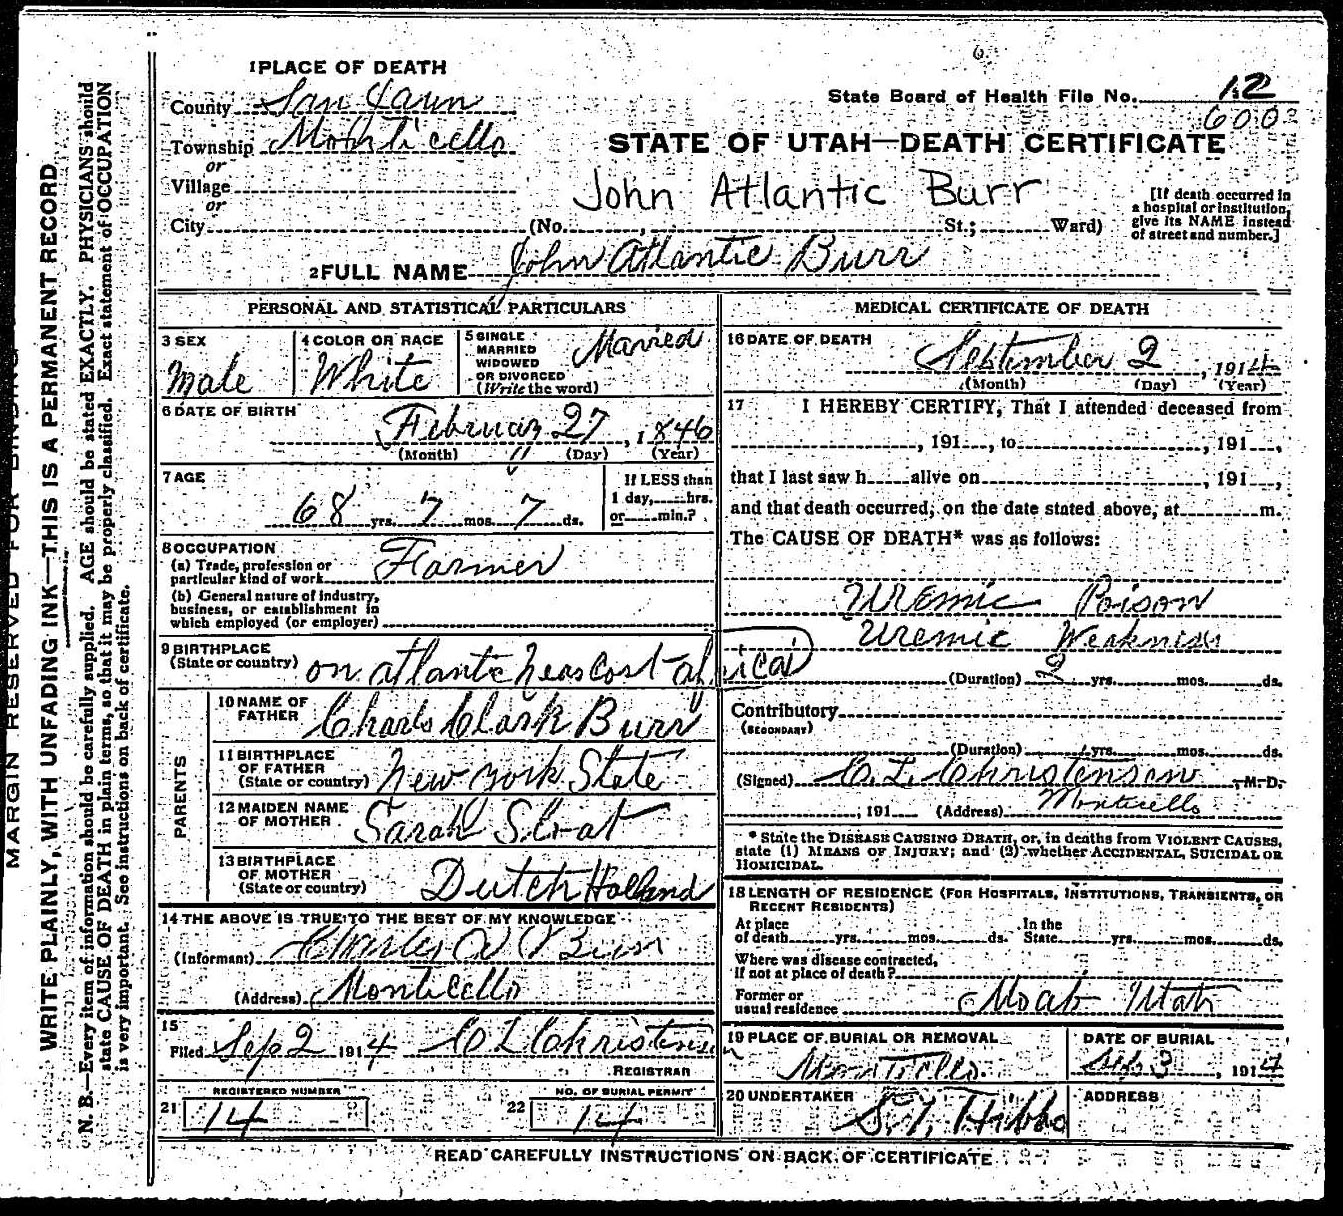 1 PLACE OF DEATH
County San Juan
Township Monticello
or
Village
or
City (No. , St.; Ward)
State Board of Health File No. 12
600
STATE OF UTAH—DEATH CERTIFICATE
John Atlantic Burr
[If death occurred in
a hospital or institution,
give its NAME instead
of street and number.]
2 FULL NAME John Atlantic Burr
PERSONAL AND STATISTICAL PARTICULARS
3 SEX
Male
4 COLOR OR RACE
White
5 SINGLE
MARRIED
WIDOWED
OR DIVORCED
(Write the word)
Married
6 DATE OF BIRTH
February 27, 1846
(Month) (Day) (Year)
7 AGE
68 yrs. 7 mos. 7 ds.
If LESS than
1 day, hrs.
or min.?
8 OCCUPATION
(a) Trade, profession or
particular kind of work Farmer
(b) General nature of industry,
business, or establishment in
which employed (or employer)
9 BIRTHPLACE
(State or country) on atlantic
10 NAME OF
FATHER Charls Clark Burr
11 BIRTHPLACE
OF FATHER
(State or country) New York State
12 MAIDEN NAME
OF MOTHER Sarah Sloat
13 BIRTHPLACE
OF MOTHER
(State or country) Dutch Holland
PARENTS
14 THE ABOVE IS TRUE TO THE BEST OF MY KNOWLEDGE
(Informant) Charles Burr
(Address) Monticello
15
Filed Sep 2 1914 C L Christensen
REGISTRAR
REGISTERED NUMBER
21 14
NO. OF BURIAL PERMIT
22 14
MEDICAL CERTIFICATE OF DEATH
16 DATE OF DEATH
September 2, 1914
(Month) (Day) (Year)
17 I HEREBY CERTIFY, That I attended deceased from
, 191 , to , 191 ,
that I last saw h alive on , 191 ,
and that death occurred, on the date stated above, at m.
The CAUSE OF DEATH* was as follows:
Uremic Poison
Uremic Weakness
(Duration) 2 yrs. mos. ds.
Contributory
(SECONDARY)
(Duration) yrs. mos. ds.
(Signed) C. L. Christensen M. D.
, 191 (Address) Monticello
* State the DISEASE CAUSING DEATH, or, in deaths from VIOLENT CAUSES,
state (1) MEANS OF INJURY; and (2) whether ACCIDENTAL, SUICIDAL OR
HOMICIDAL.
18 LENGTH OF RESIDENCE (FOR HOSPITALS, INSTITUTIONS, TRANSIENTS, OR
RECENT RESIDENTS)
At place
of death yrs. mos. ds. In the
State yrs. mos. ds.
Where was disease contracted,
if not at place of death?
Former or
usual residence Moab Utah
19 PLACE OF BURIAL OR REMOVAL
Monticello.
DATE OF BURIAL
Sep 3, 1914
20 UNDERTAKER
Hibbs
ADDRESS
READ CAREFULLY INSTRUCTIONS ON BACK OF CERTIFICATE
MARGIN RESERVED FOR BINDING
WRITE PLAINLY, WITH UNFADING INK—THIS IS A PERMANENT RECORD
N. B.—Every item of information should be carefully supplied. AGE should be stated EXACTLY. PHYSICIANS should
state CAUSE OF DEATH in plain terms, so that it may be properly classified. Exact statement of OCCUPATION
is very important. See instructions on back of certificate.